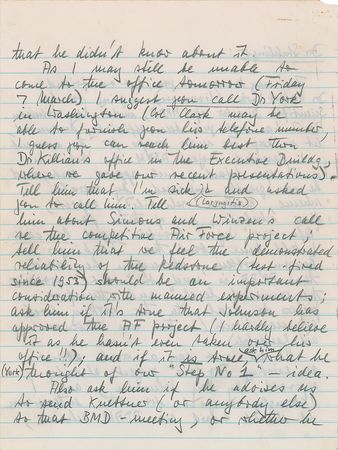 that he didn't know about it
As I may still be unable to
come to the office tomorrow (Friday
7 March) I suggest you call Dr York
in Washington (Col Clark may be
able to furnish you his telefone number,
I guess you can reach him best thru
Dr Killian's office in the Executive Buildg,
where we gave our recent presentations).
Tell him that I'm sick in and asked
(Laryngitis)
you to call him. Tell
him about Simons and Winzen's call
re the competitive Air Force project;
tell him that we feel the demonstrated
reliability of the Redstone (test-fired
since 1953) should be an important
consideration with manned experiments;
ask him if it's true that Johnson has
approved the AF project (I hardly believe
it as he hasn't even taken over his
office!!); and if it is true, ask him what he
(York) thought of our "Step No 1" - idea.
Also ask him if he advises us
to send Kuettner (or anybody else)
to that BMD - meeting, or whether he